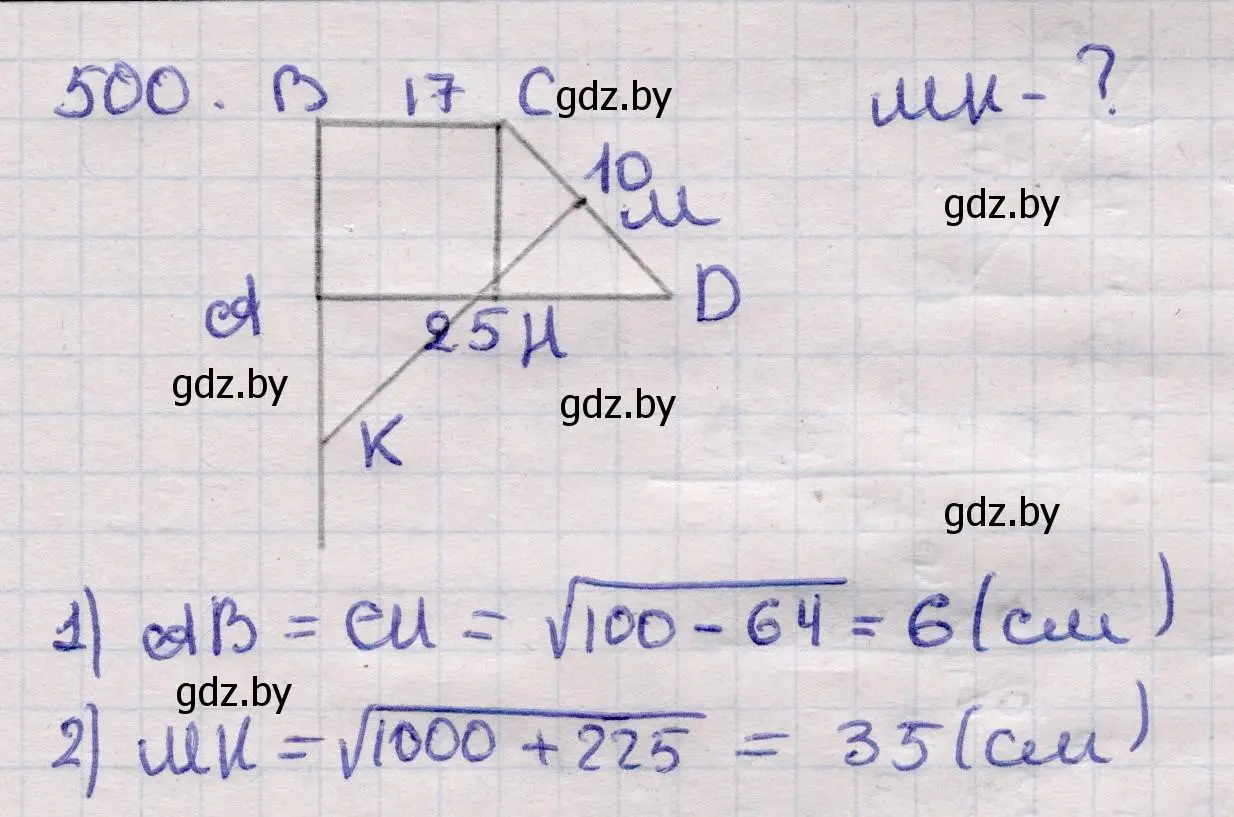 500. B 17 C gdz.by МК - ?
10
М gdz.by
А 25 H D
gdz.by gdz.by
K
gdz.by
1) АВ = СН = √100 - 64 = 6 (см)
gdz.by
2) МК = √1000 + 225 = 35 (см)